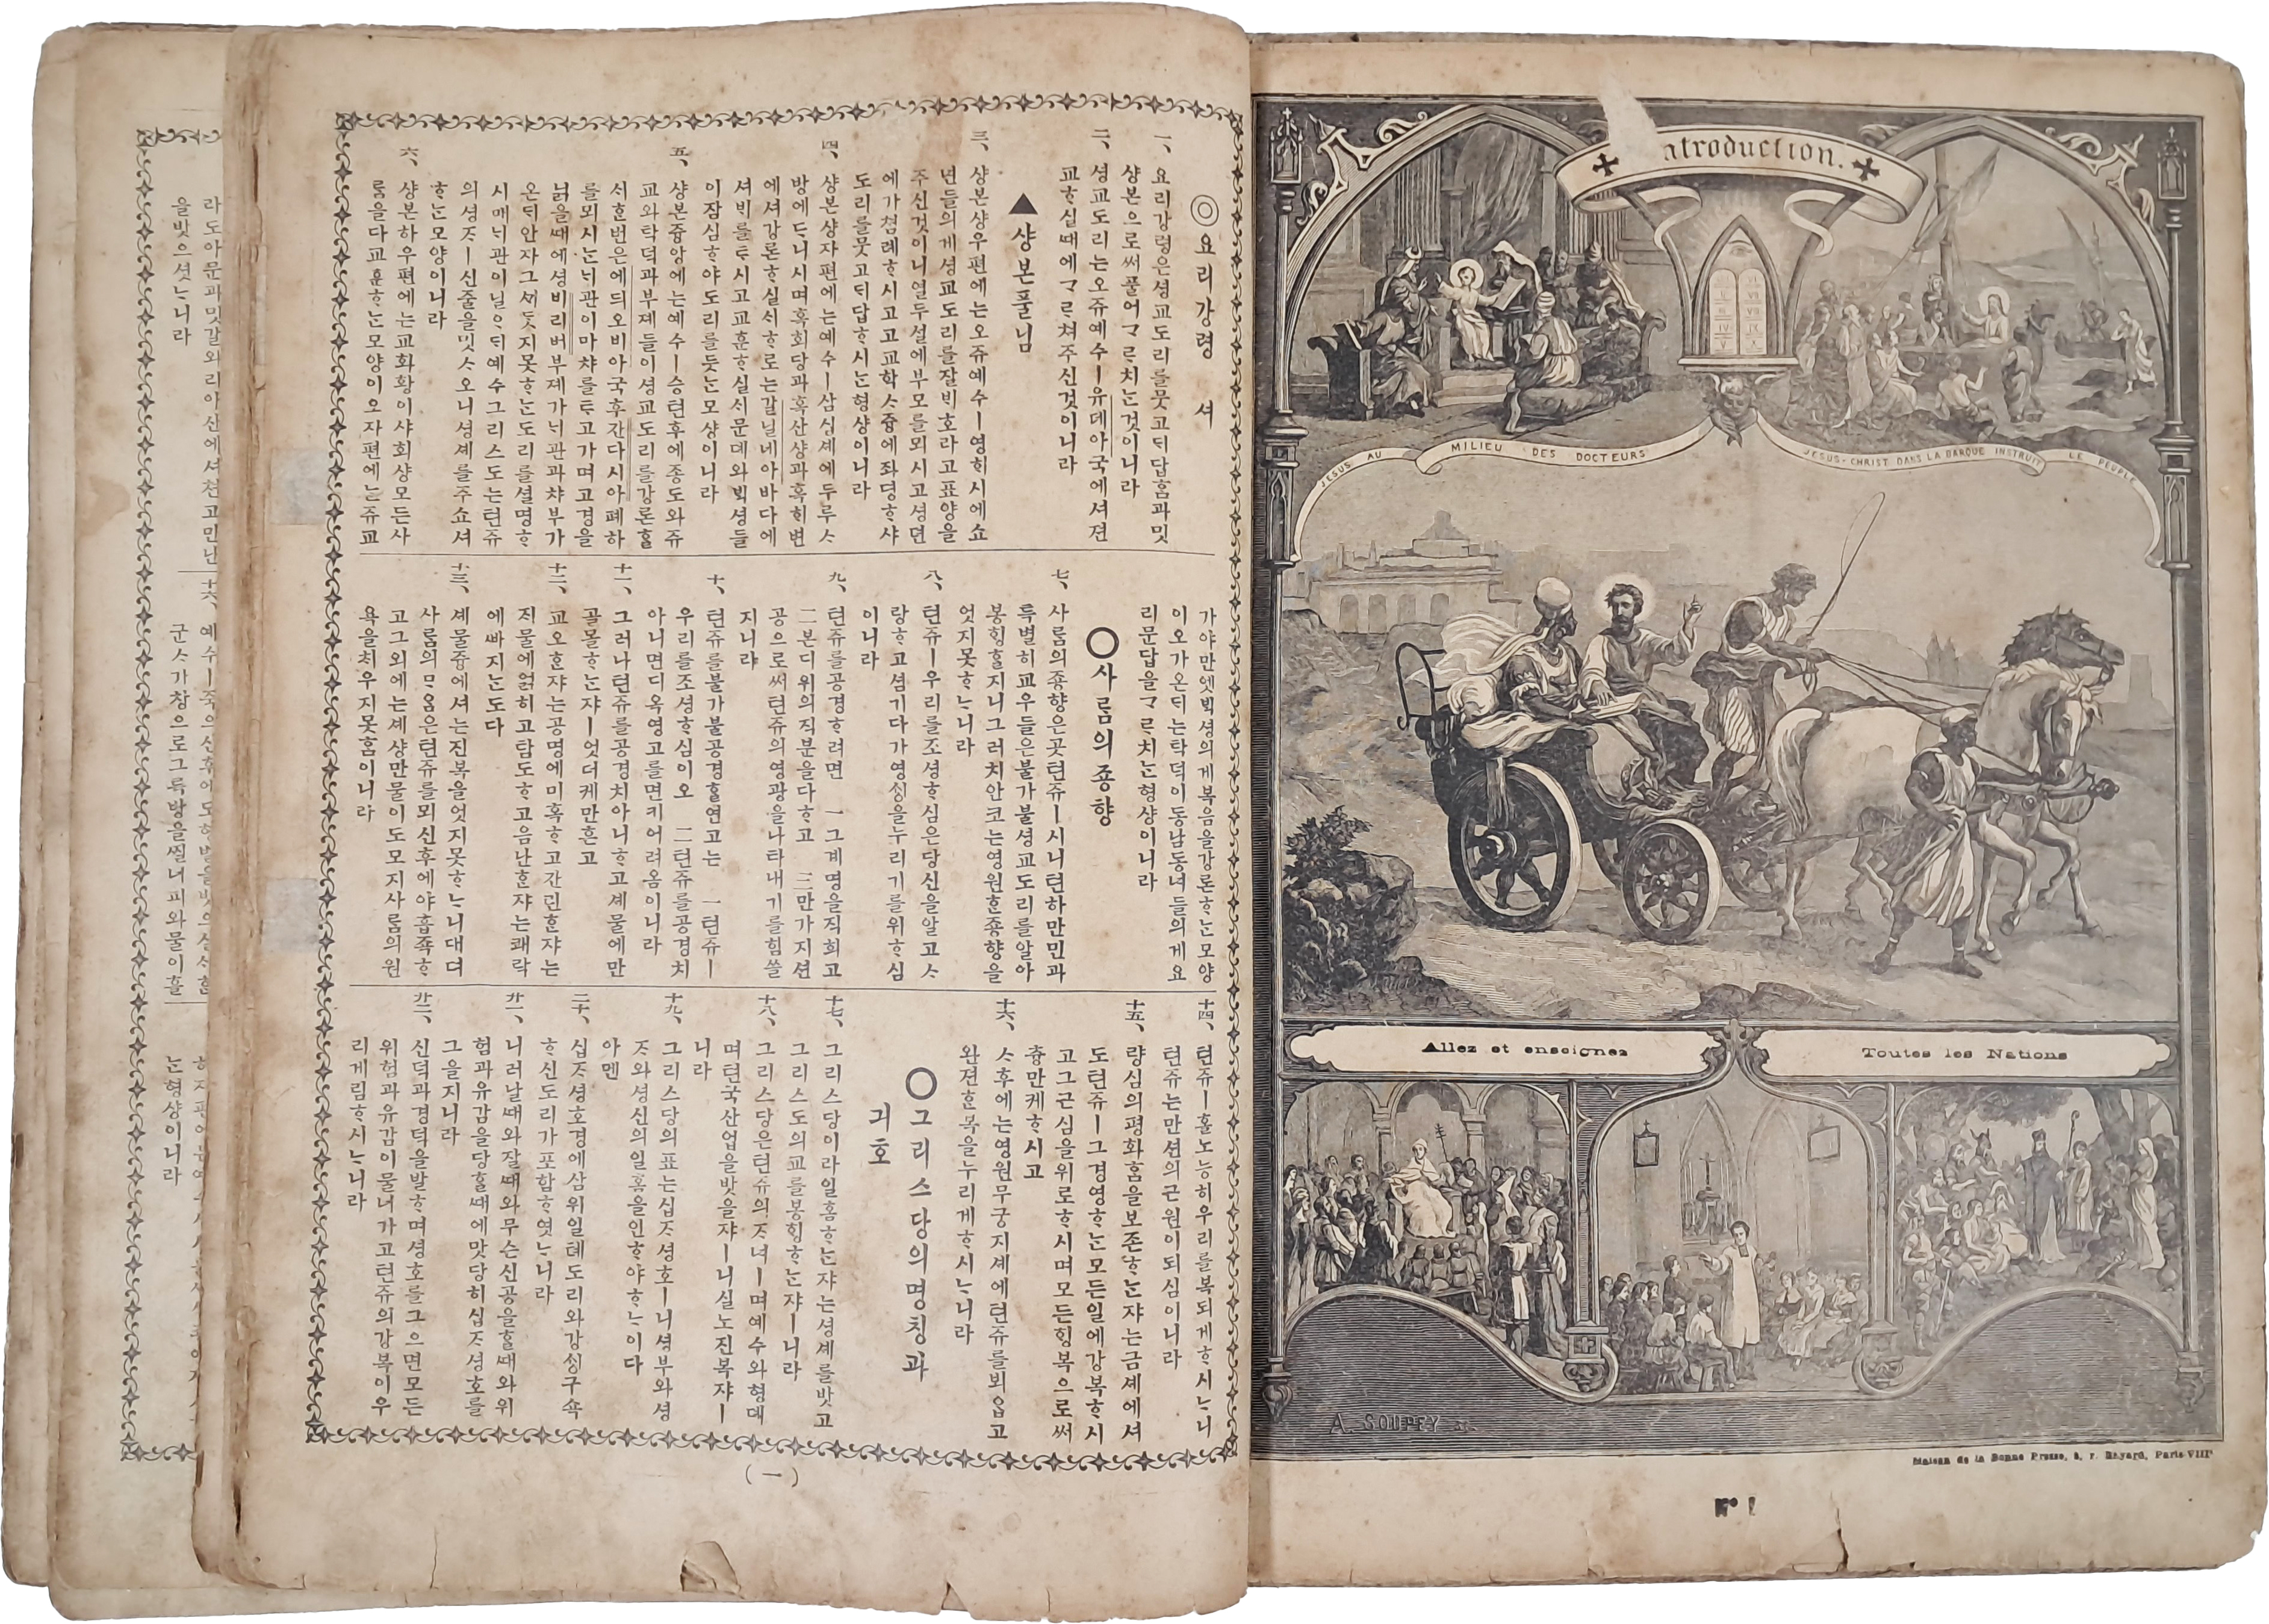 Introduction.
JÉSUS AU MILIEU DES DOCTEURS
JÉSUS-CHRIST DANS LA BARQUE INSTRUIT LE PEUPLE
Allez et enseignez
Toutes les Nations
A. SOUPEY
Maison de la Bonne Presse, 5, r. Bayard, Paris-VIIIᵉ
N° 1
◎요리강령 셔
一、요리강령은셩교도리를뭇고ᄃᆡ답홈과밋
샹본으로써풀어ᄀᆞᄅᆞ치ᄂᆞᆫ것이니라
二、셩교도리는오쥬예수ㅣ유데아국에셔젼
교ᄒᆞ실때에ᄀᆞᄅᆞ쳐주신것이니라
▲샹본풀님
三、샹본샹우편에는오쥬예수ㅣ영ᄒᆡ시에쇼
년들의게셩교도리를잘ᄇᆡ호라고표양을
주신것이니열두설에부모를뫼시고셩뎐
에가쳠례ᄒᆞ시고고교학ᄉᆞ즁에좌뎡ᄒᆞ샤
도리를뭇고ᄃᆡ답ᄒᆞ시ᄂᆞᆫ형샹이니라
四、샹본샹자편에는예수ㅣ삼십셰에두루ᄉᆞ
방에ᄃᆞᆫ니시며혹회당과혹산샹과혹ᄒᆡ변
에셔강론ᄒᆞ실ᄉᆡᄒᆞ로는갈닐네아바다에
셔ᄇᆡ를ᄐᆞ시고교훈ᄒᆞ실ᄉᆡ문뎨와ᄇᆡᆨ셩들
이잠심ᄒᆞ야도리를듯ᄂᆞᆫ모샹이니라
五、샹본즁앙에는예수ㅣ승텬후에종도와쥬
교와탁덕과부졔들이셩교도리를강론ᄒᆞᆯ
ᄉᆡᄒᆞᆫ번은에듸오비아국후간다시아폐하
를뫼시ᄂᆞᆫᄂᆡ관이마챠를ᄐᆞ고가며고경을
낡을때에셩비리버부졔가ᄂᆡ관과챠부가
온ᄃᆡ안자그ᄭᆡᄃᆞᆺ지못ᄒᆞᄂᆞᆫ도리를셜명ᄒᆞ
시매ᄂᆡ관이닐ᄋᆞᄃᆡ예수그리스도는텬쥬
의셩ᄌᆞㅣ신줄을밋ᄉᆞ오니셩셰를주쇼셔
ᄒᆞᄂᆞᆫ모양이니라
六、샹본하우편에는교화황이샤회샹모든사
ᄅᆞᆷ을다교훈ᄒᆞᄂᆞᆫ모양이오자편에는쥬교
가야만엣ᄇᆡᆨ셩의게복음을강론ᄒᆞᄂᆞᆫ모양
이오가온ᄃᆡ는탁덕이동남동녀들의게요
리문답을ᄀᆞᄅᆞ치ᄂᆞᆫ형샹이니라
○사ᄅᆞᆷ의죵향
七、사ᄅᆞᆷ의죵향은곳텬쥬ㅣ시니텬하만민과
특별히교우들은불가불셩교도리를알아
봉ᄒᆡᆼᄒᆞᆯ지니그러치안코는영원ᄒᆞᆫ죵향을
엇지못ᄒᆞᄂᆞ니라
八、텬쥬ㅣ우리를조셩ᄒᆞ심은당신을알고ᄉᆞ
랑ᄒᆞ고셤기다가영ᄉᆡᆼ을누리기를위ᄒᆞ심
이니라
九、텬쥬를공경ᄒᆞ려면 一그계명을직희고
二본디위의직분을다ᄒᆞ고 三만가지션
공으로써텬쥬의영광을나타내기를힘쓸
지니라
十、텬쥬를불가불공경ᄒᆞᆯ연고는 一텬쥬ㅣ
우리를조셩ᄒᆞ심이오 二텬쥬를공경치
아니면디옥영고를면키어려옴이니라
十一、그러나텬쥬를공경치아니ᄒᆞ고셰물에만
골몰ᄒᆞᄂᆞᆫ쟈ㅣ엇더케만흔고
十二、교오ᄒᆞᆫ쟈는공명에미혹ᄒᆞ고간린ᄒᆞᆫ쟈는
ᄌᆡ물에얽히고탐도ᄒᆞ고음난ᄒᆞᆫ쟈는쾌락
에빠지ᄂᆞᆫ도다
十三、셰물즁에셔는진복을엇지못ᄒᆞᄂᆞ니대뎌
사ᄅᆞᆷ의ᄆᆞᄋᆞᆷ은텬쥬를뫼신후에야흡죡ᄒᆞ
고그외에는셰샹만물이도모지사ᄅᆞᆷ의원
욕을ᄎᆡ우지못홈이니라
十四、텬쥬ㅣ홀노능히우리를복되게ᄒᆞ시ᄂᆞ니
텬쥬는만션의근원이되심이니라
十五、량심의평화홈을보존ᄒᆞᄂᆞᆫ쟈는금셰에셔
도텬쥬ㅣ그경영ᄒᆞᄂᆞᆫ모든일에강복ᄒᆞ시
고그근심을위로ᄒᆞ시며모든ᄒᆡᆼ복으로써
츙만케ᄒᆞ시고
十六、ᄉᆞ후에는영원무궁지셰에텬쥬를뵈옵고
완젼ᄒᆞᆫ복을누리게ᄒᆞ시ᄂᆞ니라
○그리스당의명칭과
긔호
十七、그리스당이라일홈ᄒᆞᄂᆞᆫ쟈는셩셰를밧고
그리스도의교를봉ᄒᆡᆼᄒᆞᄂᆞᆫ쟈ㅣ니라
十八、그리스당은텬쥬의ᄌᆞ녀ㅣ며예수와형뎨
며텬국산업을밧을쟈ㅣ니실노진복쟈ㅣ
니라
十九、그리스당의표는십ᄌᆞ셩호ㅣ니셩부와셩
ᄌᆞ와셩신의일홈을인ᄒᆞ야ᄒᆞᄂᆞ이다
아멘
二十、십ᄌᆞ셩호경에삼위일톄도리와강ᄉᆡᆼ구쇽
ᄒᆞ신도리가포함ᄒᆞ엿ᄂᆞ니라
廿一、니러날때와잘때와무슨신공을ᄒᆞᆯ때와위
험과유감을당ᄒᆞᆯ때에맛당히십ᄌᆞ셩호를
그을지니라
廿二、신덕과경덕을발ᄒᆞ며셩호를그으면모든
위험과유감이물너가고텬쥬의강복이우
리게림ᄒᆞ시ᄂᆞ니라
(一)
을밧으셧ᄂᆞ니라
十六、
군ᄉᆞ가창으로그륵방을찔너피와물이흘
ᄂᆞᆫ형샹이니라